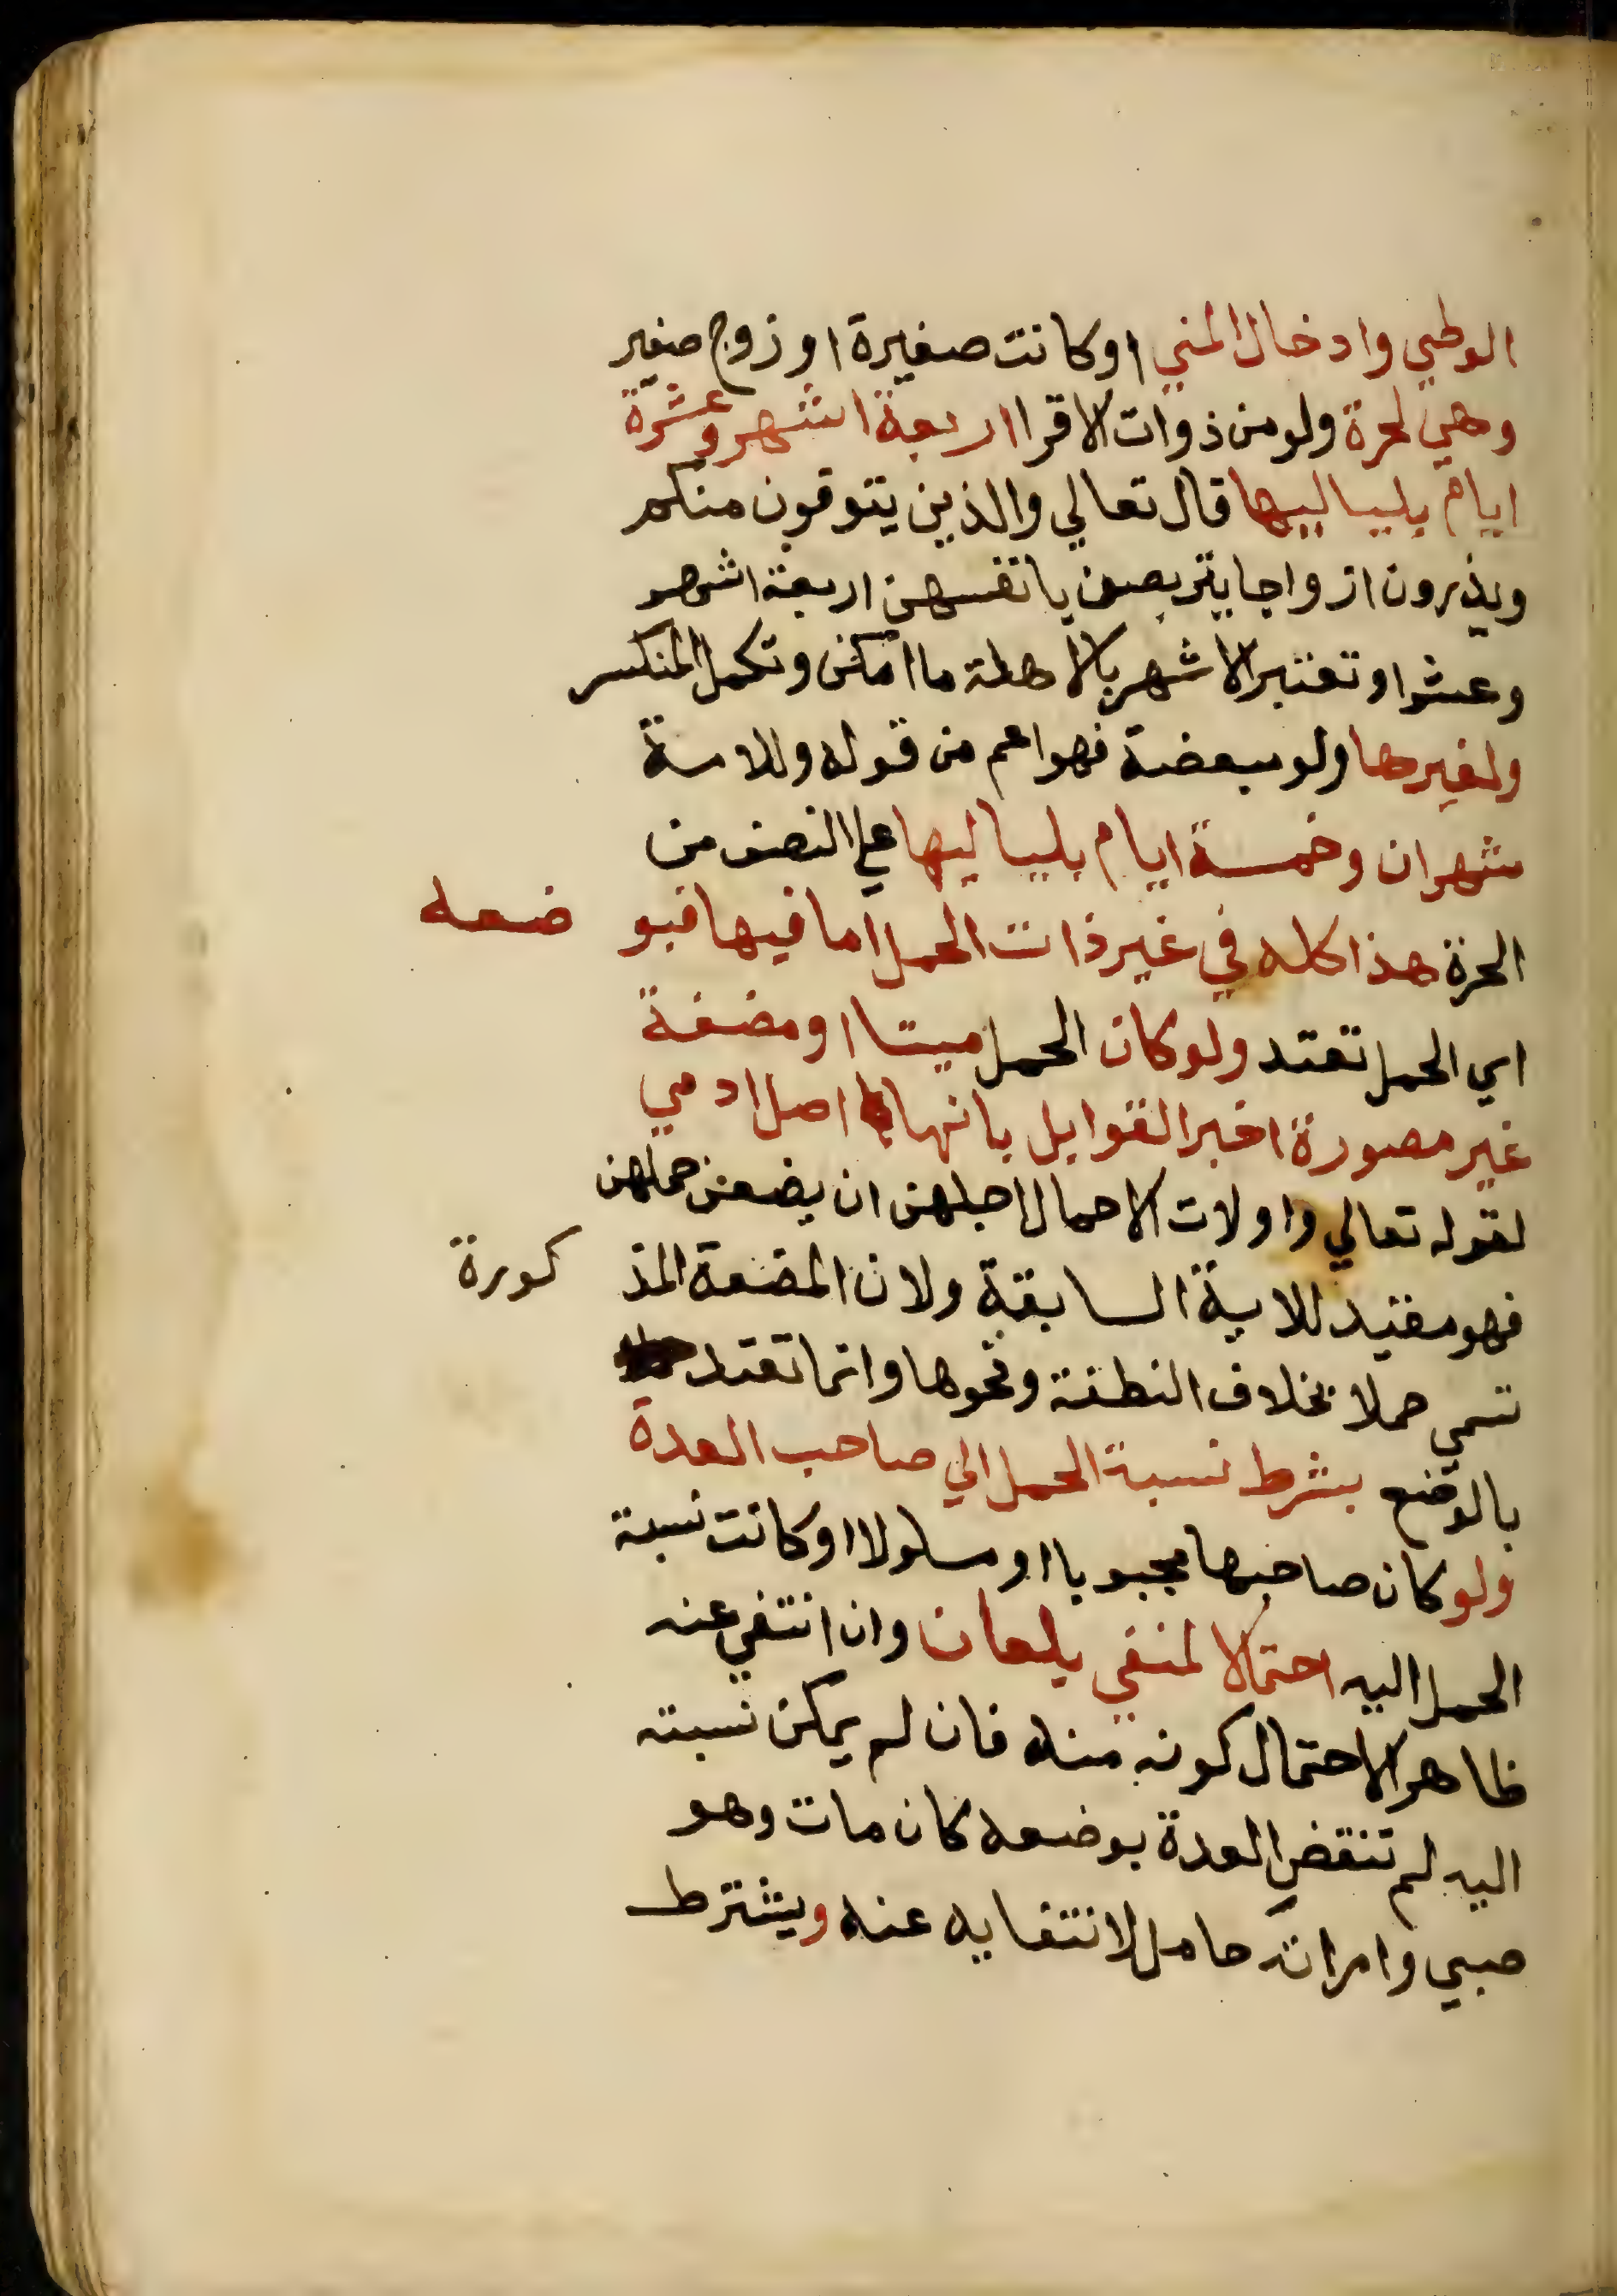 الوطي وادخال المني اوكانت صغيرة او زوج صغير
وهي لحرة ولومن ذوات الاقرا اربعة اشهر وعشرة
ايام بلياليها قال تعالي والذين يتوفون منكم
ويذرون ازواجا يتربصن بانفسهن اربعة اشهر
وعشرا وتعتبر الاشهر بالاهلة ما امكن وتكمل المنكسر
ولغيرها ولو مبعضة فهو اعم من قوله وللامة
شهران وخمسة ايام بلياليها علي النصف من
الحرة هذا كله في غير ذات الحمل اما فيها فبو ضعه
اي الحمل تعتد ولو كان الحمل ميتا او مضغة
غير مصورة اخبر القوابل بانها اصل ادمي
لقوله تعالي واولات الاحمال اجلهن ان يضعن حملهن
فهو مقيد للاية السابقة ولان المضغة المذ كورة
تسمي حملا بخلاف النطفة ونحوها وانما تعتد
بالوضع بشرط نسبة الحمل الي صاحب العدة
ولو كان صاحبها مجبوبا او مسلولا او كانت نسبة
الحمل اليه احتمالا لمنفي بلعان وان انتفي عنه
ظاهرا لاحتمال كونه منه فان لم يمكن نسبته
اليه لم تنقض العدة بوضعه كان مات وهو
صبي وامراته حامل لانتفايه عنه ويشترط